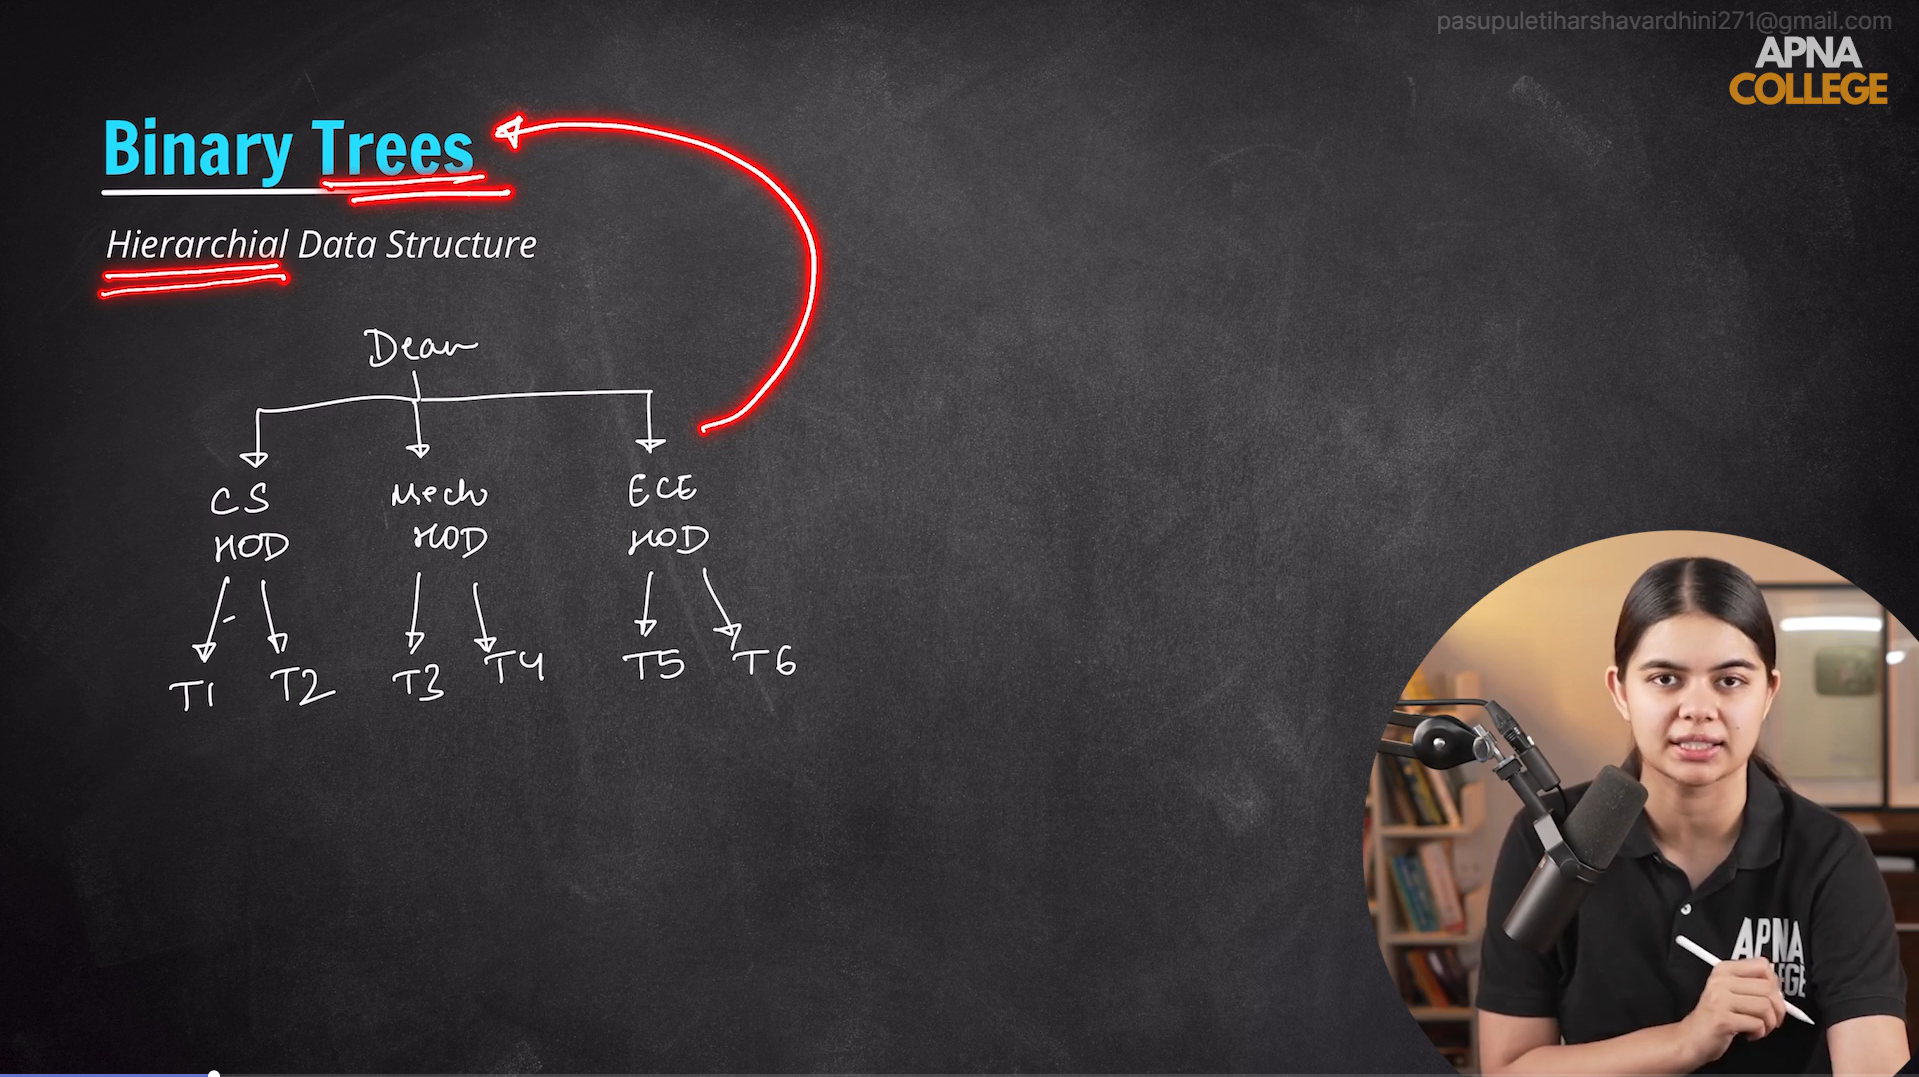 pasupuletiharshavardhini271@gmail.com
APNA
COLLEGE
Binary Trees
Hierarchial Data Structure
Dean
CS
HOD
Mech
HOD
ECE
HOD
T1
T2
T3
T4
T5
T6
APNA